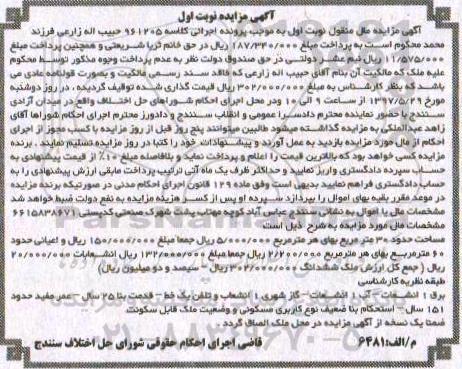 آگهی مزایده نوبت اول
آگهی مزایده مال منقول نوبت اول به موجب پرونده اجرائی کلاسه 961205 حبیب اله زارعی فرزند
محمد محکوم است به پرداخت مبلغ 187/330/000 ریال در حق خانم ثریا شریعتی و همچنین پرداخت مبلغ
11/575/000 ریال نیم عشر دولتی در حق صندوق دولت نظر به عدم پرداخت وجوه مذکور توسط محکوم
علیه ملک که مالکیت آن بنام آقای حبیب اله زارعی که فاقد سند رسمی مالکیت و بصورت قولنامه عادی می
باشد با نظر کارشناس به مبلغ 302/000/000 ریال قیمت گذاری شده توقیف گردیده، در روز دوشنبه
مورخ 1397/5/29 از ساعت 9 الی 10 ودر محل اجرای احکام شوراهای حل اختلاف واقع در میدان آزادی
سنندج با حضور نماینده محترم دادسرا عمومی و انقلاب سنندج و دادورز محترم اجرای احکام شوراها آقای
زاهد عبدالملکی به مزایده گذاشته میشود طالبین میتوانند پنج روز قبل از روز مزایده با کسب مجوز از اجرای
احکام از مال مورد مزایده بازدید به عمل آورند و پیشنهادات خود را کتبا در روز مزایده تسلیم نمایند. برنده
مزایده کسی خواهد بود که بالاترین قیمت را اعلام و پرداخت نماید و بلافاصله مبلغ 10٪ از قیمت پیشنهادی به
حساب سپرده دادگستری واریز نمایید و حداکثر ظرف یک ماه آتی ترتیب پرداخت مابقی ارزش پیشنهادی را به
حساب دادگستری فراهم نمایید بدیهی است وفق ماده 129 قانون اجرای احکام مدنی در صورتیکه برنده مزایده
در موعد مقرر بقیه بهای اموال را نپردازد سپرده او پس از کسر هزینه مزایده به نفع دولت ضبط خواهد شد
مشخصات مال یا اموال به نشانی سنندج عباس آباد کوچه مهتاب پشت شهرک صنعتی کدپستی 6615838671
مشخصات مال مورد مزایده به شرح ذیل است
مساحت حدود 30 متر مربع بهای هر مترمربع 5/000/000 ریال جمعا مبلغ 150/000/000 ریال و اعیانی حدود
60 مترمربع بهای هر مترمربع 2/200/000 ریال جمعا مبلغ 132/000/000 ریال انشعابات 20/000/000
ریال ( جمع کل ارزش ملک ششدانگ 302/000/000 ریال - سیصد و دو میلیون ریال)
طبقه نظریه کارشناسی
برق 1 انشعاب - آب 1 انشعاب - گاز شهری 1 انشعاب و تلفن یک خط - قدمت بنا 25 سال - عمر مفید حدود
151 سال - استحکام بنا ضعیف نوع کاربری مسکونی و وضعیت ملک قابل سکونت
ضمنا یک نسخه از آگهی مزایده در محل ملک الصاق گردد
م/الف: 6481 قاضی اجرای احکام حقوقی شورای حل اختلاف سنندج